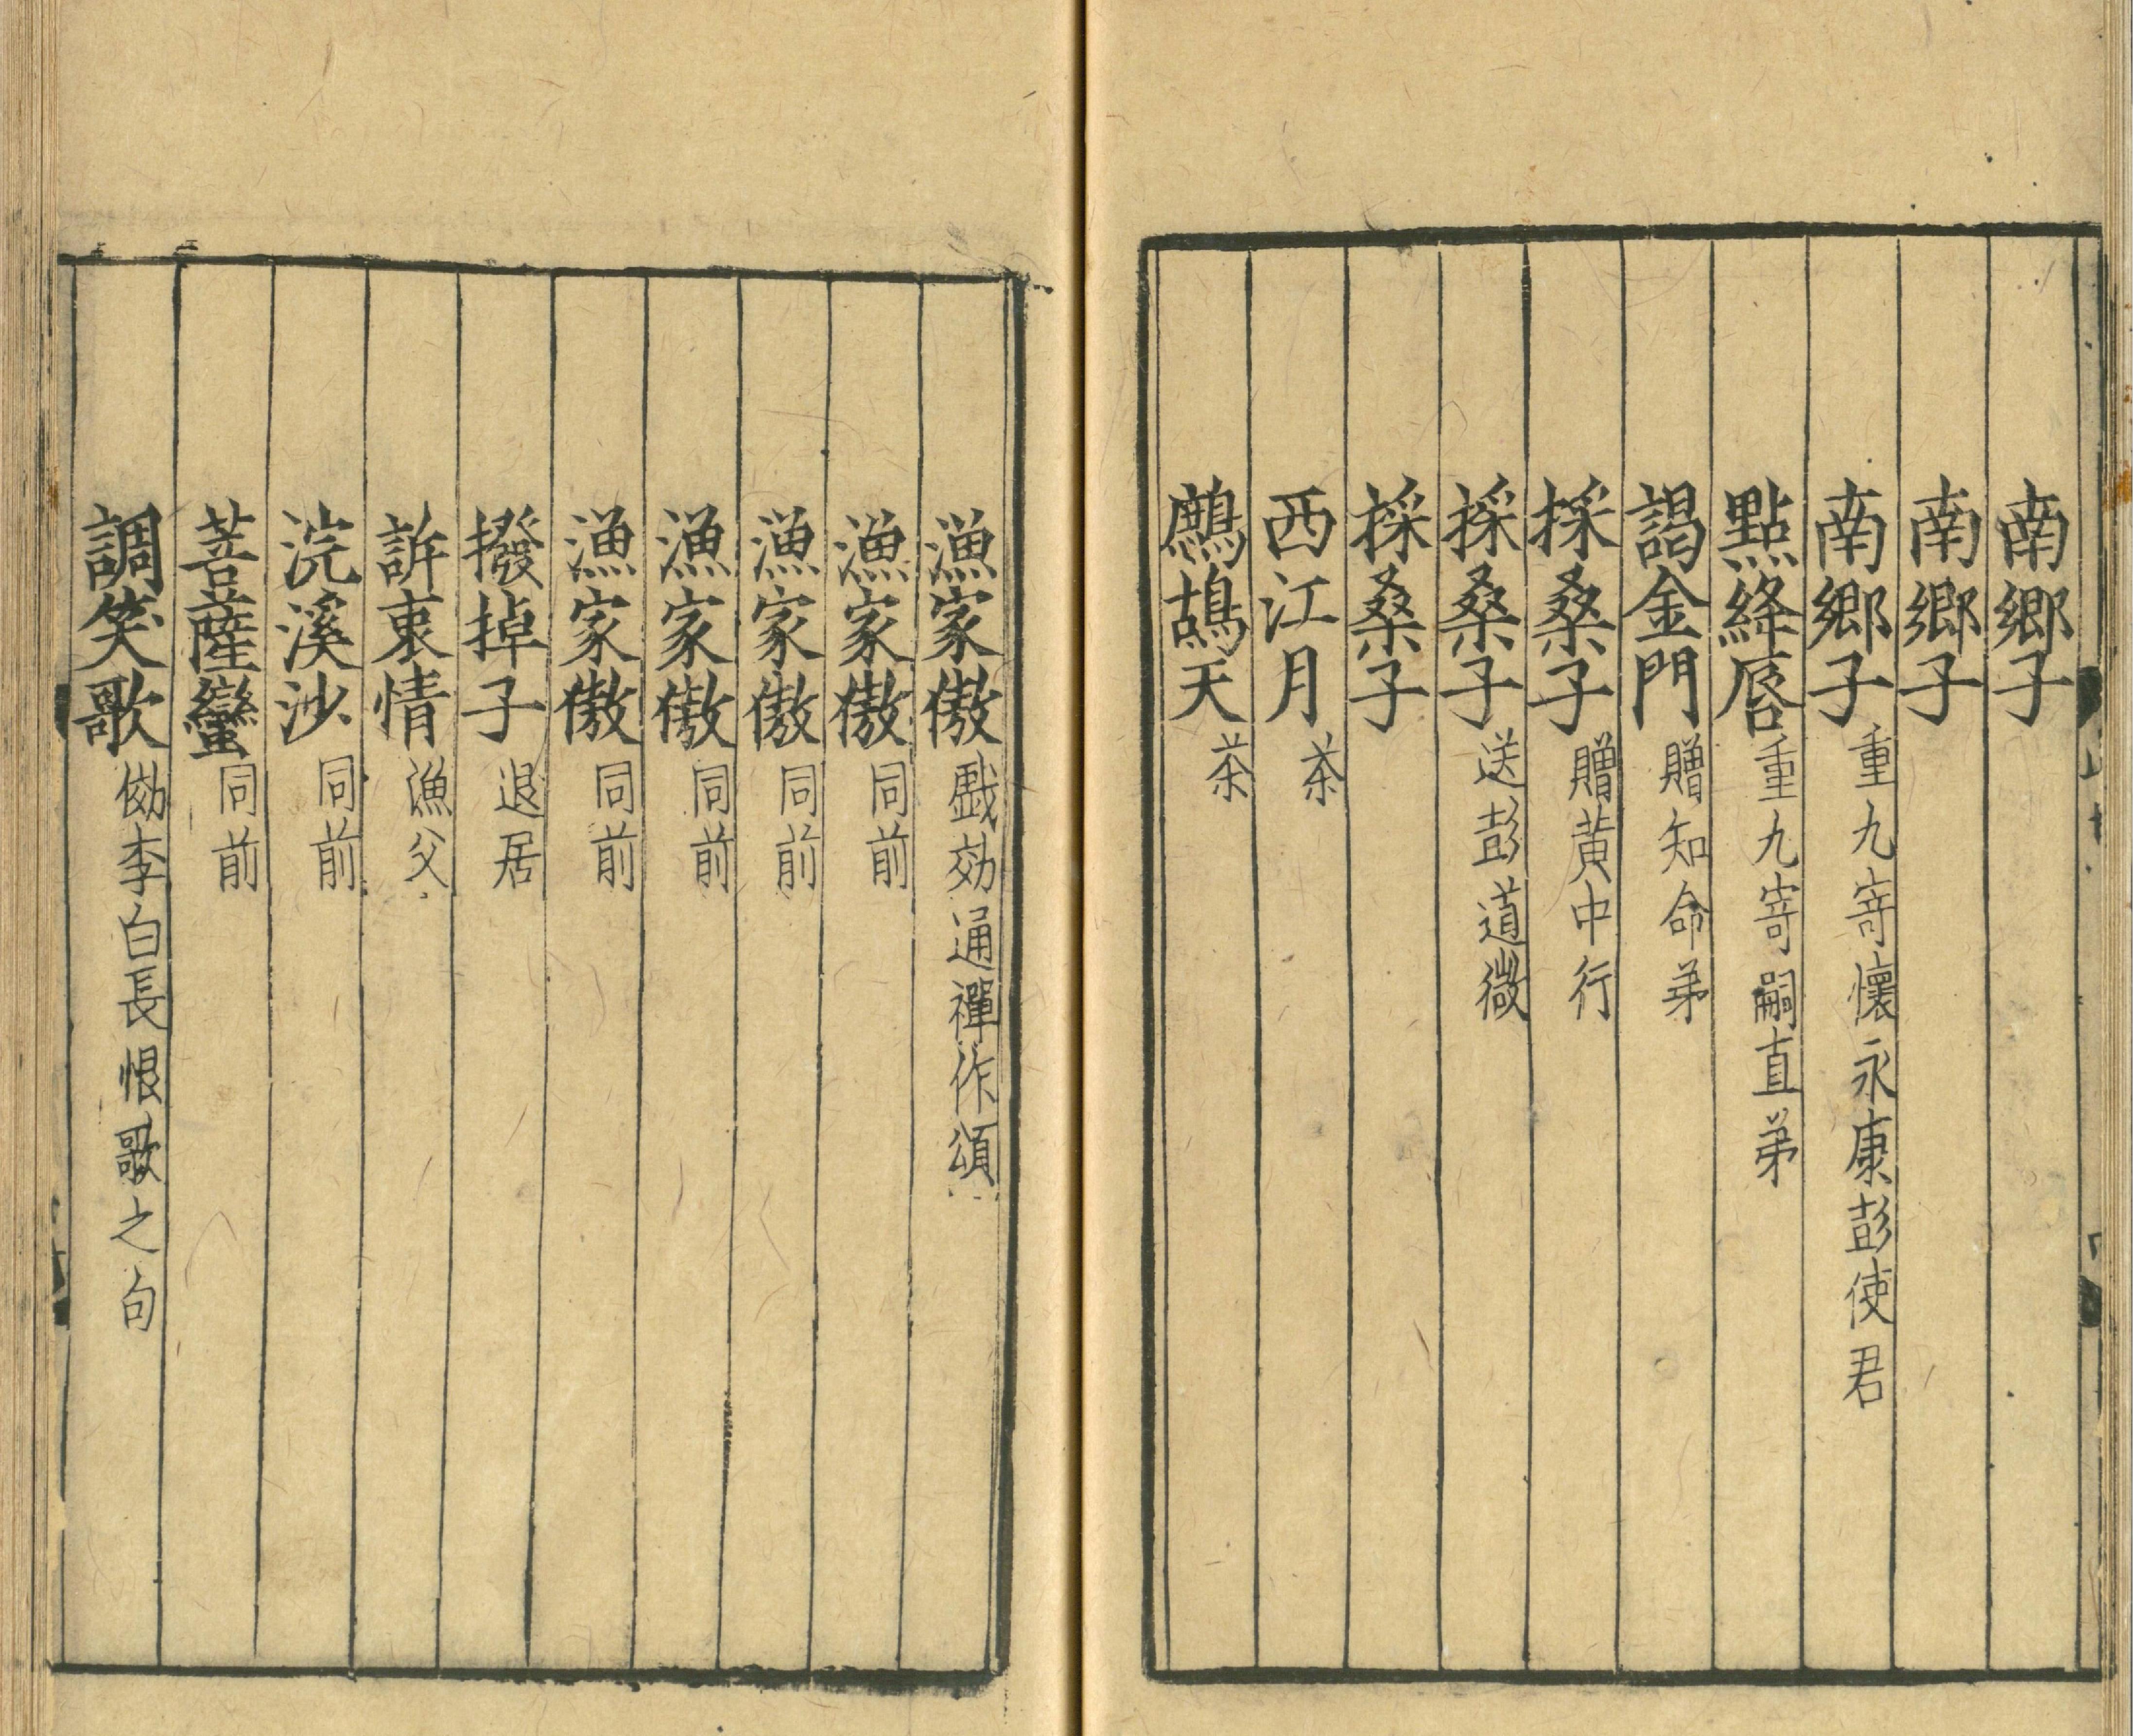 南鄉子
南鄉子
南鄉子 重九寄懷永康彭使君
點絳唇 重九寄嗣直弟
謁金門 贈知命弟
採桑子 贈黃中行
採桑子 送彭道微
採桑子
西江月 茶
鷓鴣天 茶
漁家傲 戲効通禪作頌
漁家傲 同前
漁家傲 同前
漁家傲 同前
漁家傲 同前
撥掉子 退居
訴衷情 漁父
浣溪沙 同前
菩薩蠻 同前
調笑歌 傚李白長恨歌之句